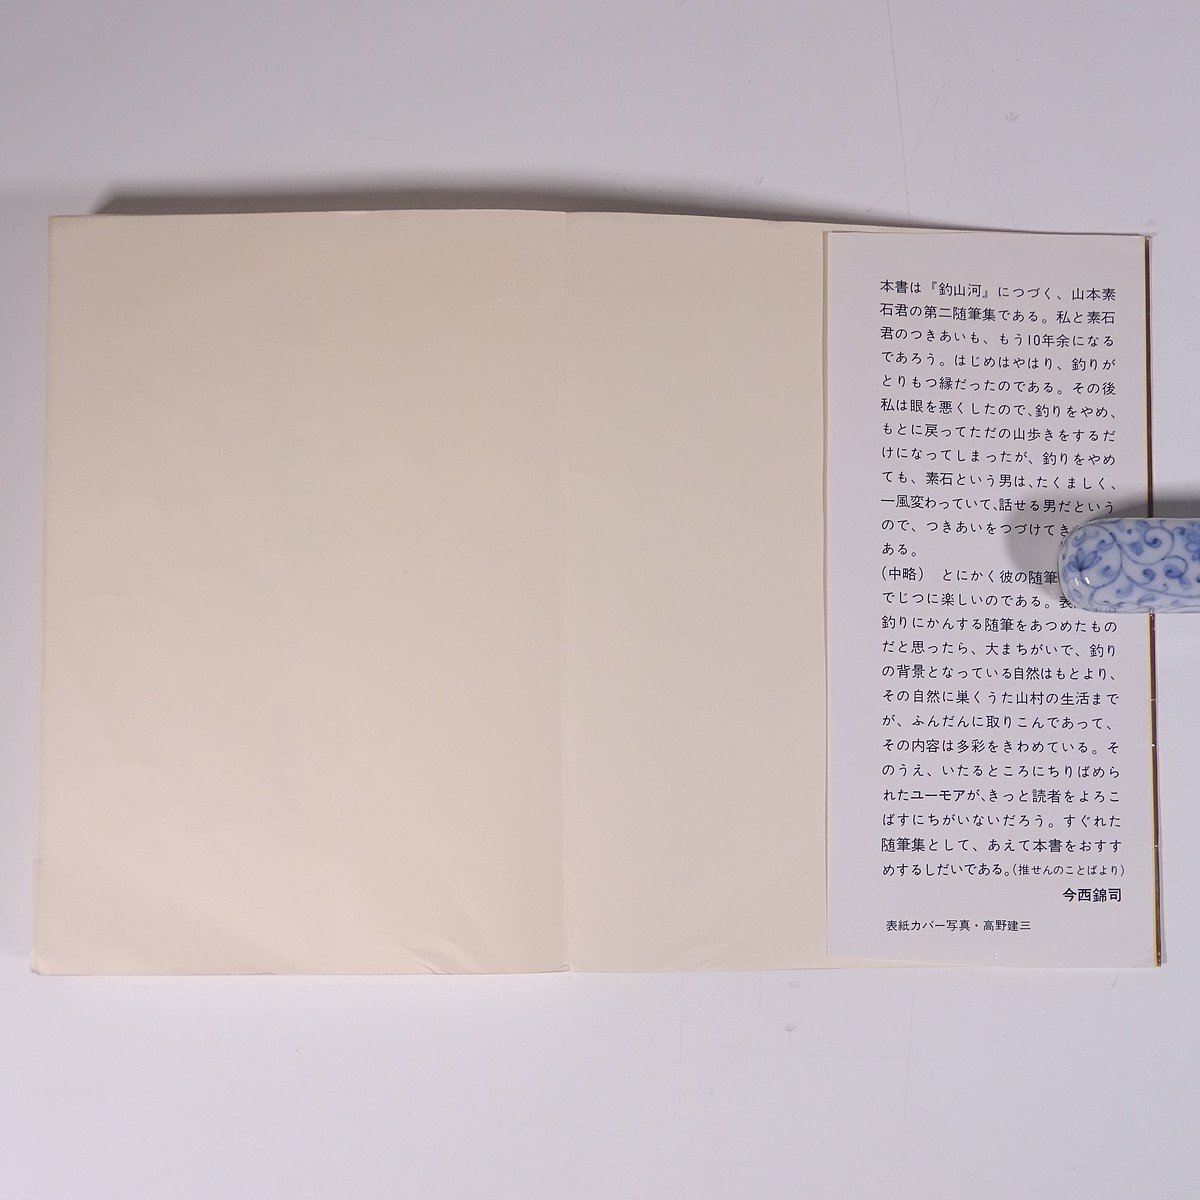 本書は『釣山河』につづく、山本素
石君の第二随筆集である。私と素石
君のつきあいも、もう10年余になる
であろう。はじめはやはり、釣りが
とりもつ縁だったのである。その後
私は眼を悪くしたので、釣りをやめ、
もとに戻ってただの山歩きをするだ
けになってしまったが、釣りをやめ
ても、素石という男は、たくましく、
一風変わっていて、話せる男だという
ので、つきあいをつづけてき
ある。
(中略)　とにかく彼の随筆
でじつに楽しいのである。
釣りにかんする随筆をあつめたもの
だと思ったら、大まちがいで、釣り
の背景となっている自然はもとより、
その自然に巣くうた山村の生活まで
が、ふんだんに取りこんであって、
その内容は多彩をきわめている。そ
のうえ、いたるところにちりばめら
れたユーモアが、きっと読者をよろこ
ばすにちがいないだろう。すぐれた
随筆集として、あえて本書をおすす
めするしだいである。(推せんのことばより)
今西錦司
表紙カバー写真・高野建三